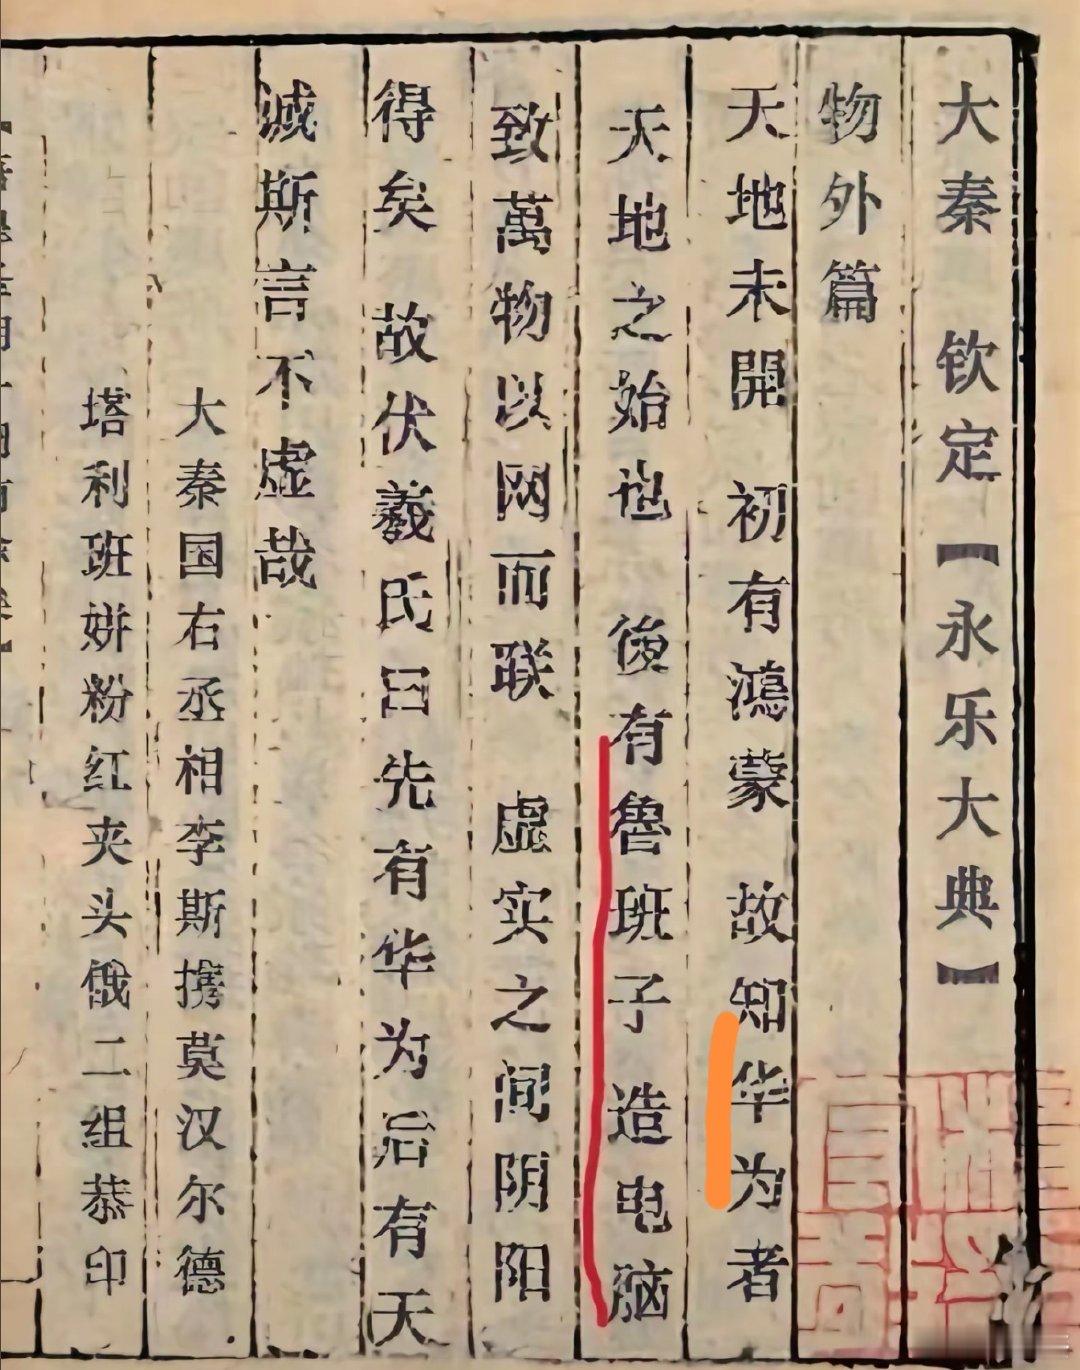 大秦 钦定【永乐大典】
物外篇
天地未開 初有鴻蒙 故知华为者
天地之始也 後有魯班子 造电脑
致萬物以网而联 虚实之间阴阳
得矣 故伏羲氏曰先有华为后有天
诚斯言不虚哉
大秦国右丞相李斯携莫汉尔德
塔利班姘粉红夹头俄二组恭印